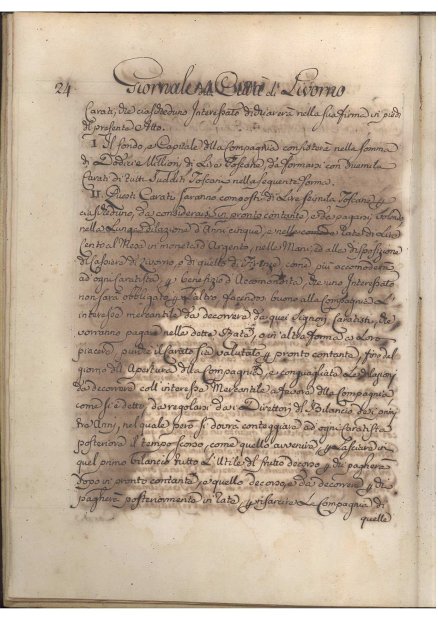 24. Giornale della Città di Livorno
Carati, che ciascheduno Interessato dichiarerà nella sua firma in piedi
del presente Atto.
I. Il fondo, e Capitale della Compagnia consisterà nella somma
di Dodici Milioni di Lire Toscane, da formarsi con duemila
Carati di tutti Sudditi Toscani nella seguente forma.
II. Questi Carati saranno composti di Lire seimila Toscane per
ciascheduno, da considerarsi in pronto contante, e da pagarsi
nella lunga dilazione d'Anni cinque, e nelle rate di Lire
Cento al Mese in moneta d'Argento, nelle Mani, ed alla disposizione
del Cassiere di Livorno, o di quello di Firenze come più accomoderà
ad ogni Caratista per benefizio d'Accomandita, che uno Interessato
non sarà obbligato per l'altro, facendo buono alla Compagnia l'
interesse mercantile da decorrere da quei Signori Caratisti, che
vorranno pagare nelle dette Rate, o in altra forma a loro
piacere, purché il Carato sia valutato per pronto contante, fino del
giorno dell'Apertura della Compagnia, e conguagliate le dilazioni
da decorrere coll'interesse Mercantile a favore della Compagnia
come si è detto, da regolarsi dai Direttori del Bilancio dei primi
tre Anni, nel quale però si dovrà conteggiare ad ogni Caratista
posteriore il tempo scorso, come quello avvenire, per lasciare in
quel primo bilancio tutto l'Utile del frutto decorso per chi pagherà
dopo in pronto contante, e quello decorso, e da decorrere per chi
pagherà posteriormente in rate, per risarcire la Compagnia di
quelle